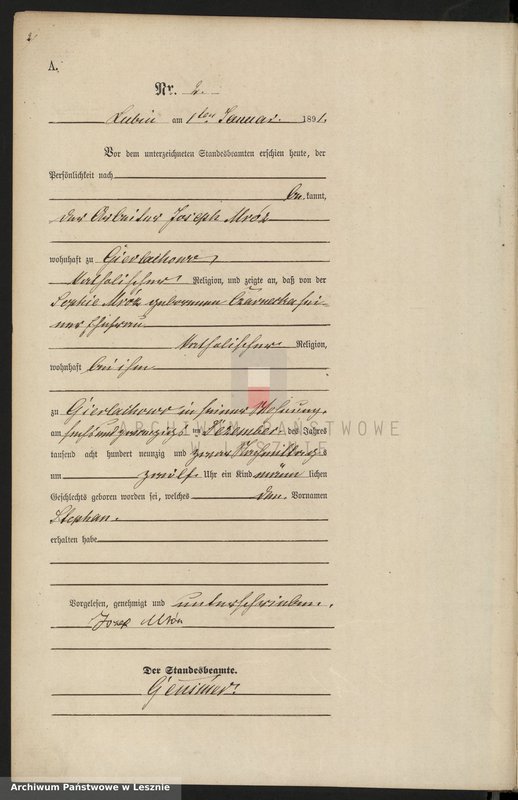 A.
Nr. 2.
Lubin am 1ten Januar 1891.
Vor dem unterzeichneten Standesbeamten erschien heute, der
Persönlichkeit nach
be kannt,
der Arbeiter Joseph Mróz
wohnhaft zu Gierlachowo,
katholischer Religion, und zeigte an, daß von der
Sophie Mróz geborenen Czarnecka sei-
ner Ehefrau
katholischer Religion,
wohnhaft bei ihm
zu Gierlachowo in seiner Wohnung,
am sechsundzwanzigs ten Dezember des Jahres
tausend acht hundert neunzig und zwar Nachmittags
um zwölf Uhr ein Kind männ lichen
Geschlechts geboren worden sei, welches den Vornamen
Stephan.
erhalten habe
Vorgelesen, genehmigt und unterschrieben.
Josep Mróz
Der Standesbeamte.
ARCHIWUM PAŃSTWOWE
W LESZNIE
Archiwum Państwowe w Lesznie